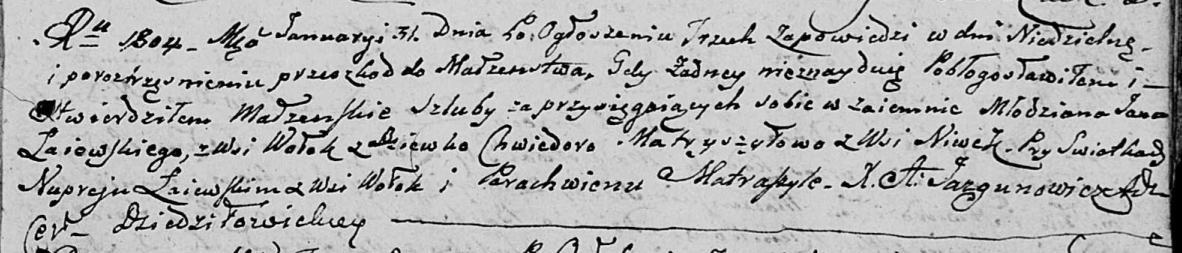 Rku 1804. Mca Januaryi 31. Dnia Po Ogłoszeniu Trzech Zapowiedzi w dni Niedzielne
i porozrzęsnieniu przeszkod do Małzenstwa, Gdy Zadney nieznayduię Pobłogosławiłem i
utwierdziłem Małzenskie szluby zaprzysięgaiących sobie w zaiemnie Młodziana Jana
Łaiewskiego, z Wsi Wołok z Dziewko Chwiedoro Matryszyłowo z Wsi Niwek. Przy Swiatkach
Nupreju Łaiewskim z Wsi Wołok i Parachwienu Matraszyle. X. A: Jazgunowicz Adr
Cer. Dziedziłowickiey